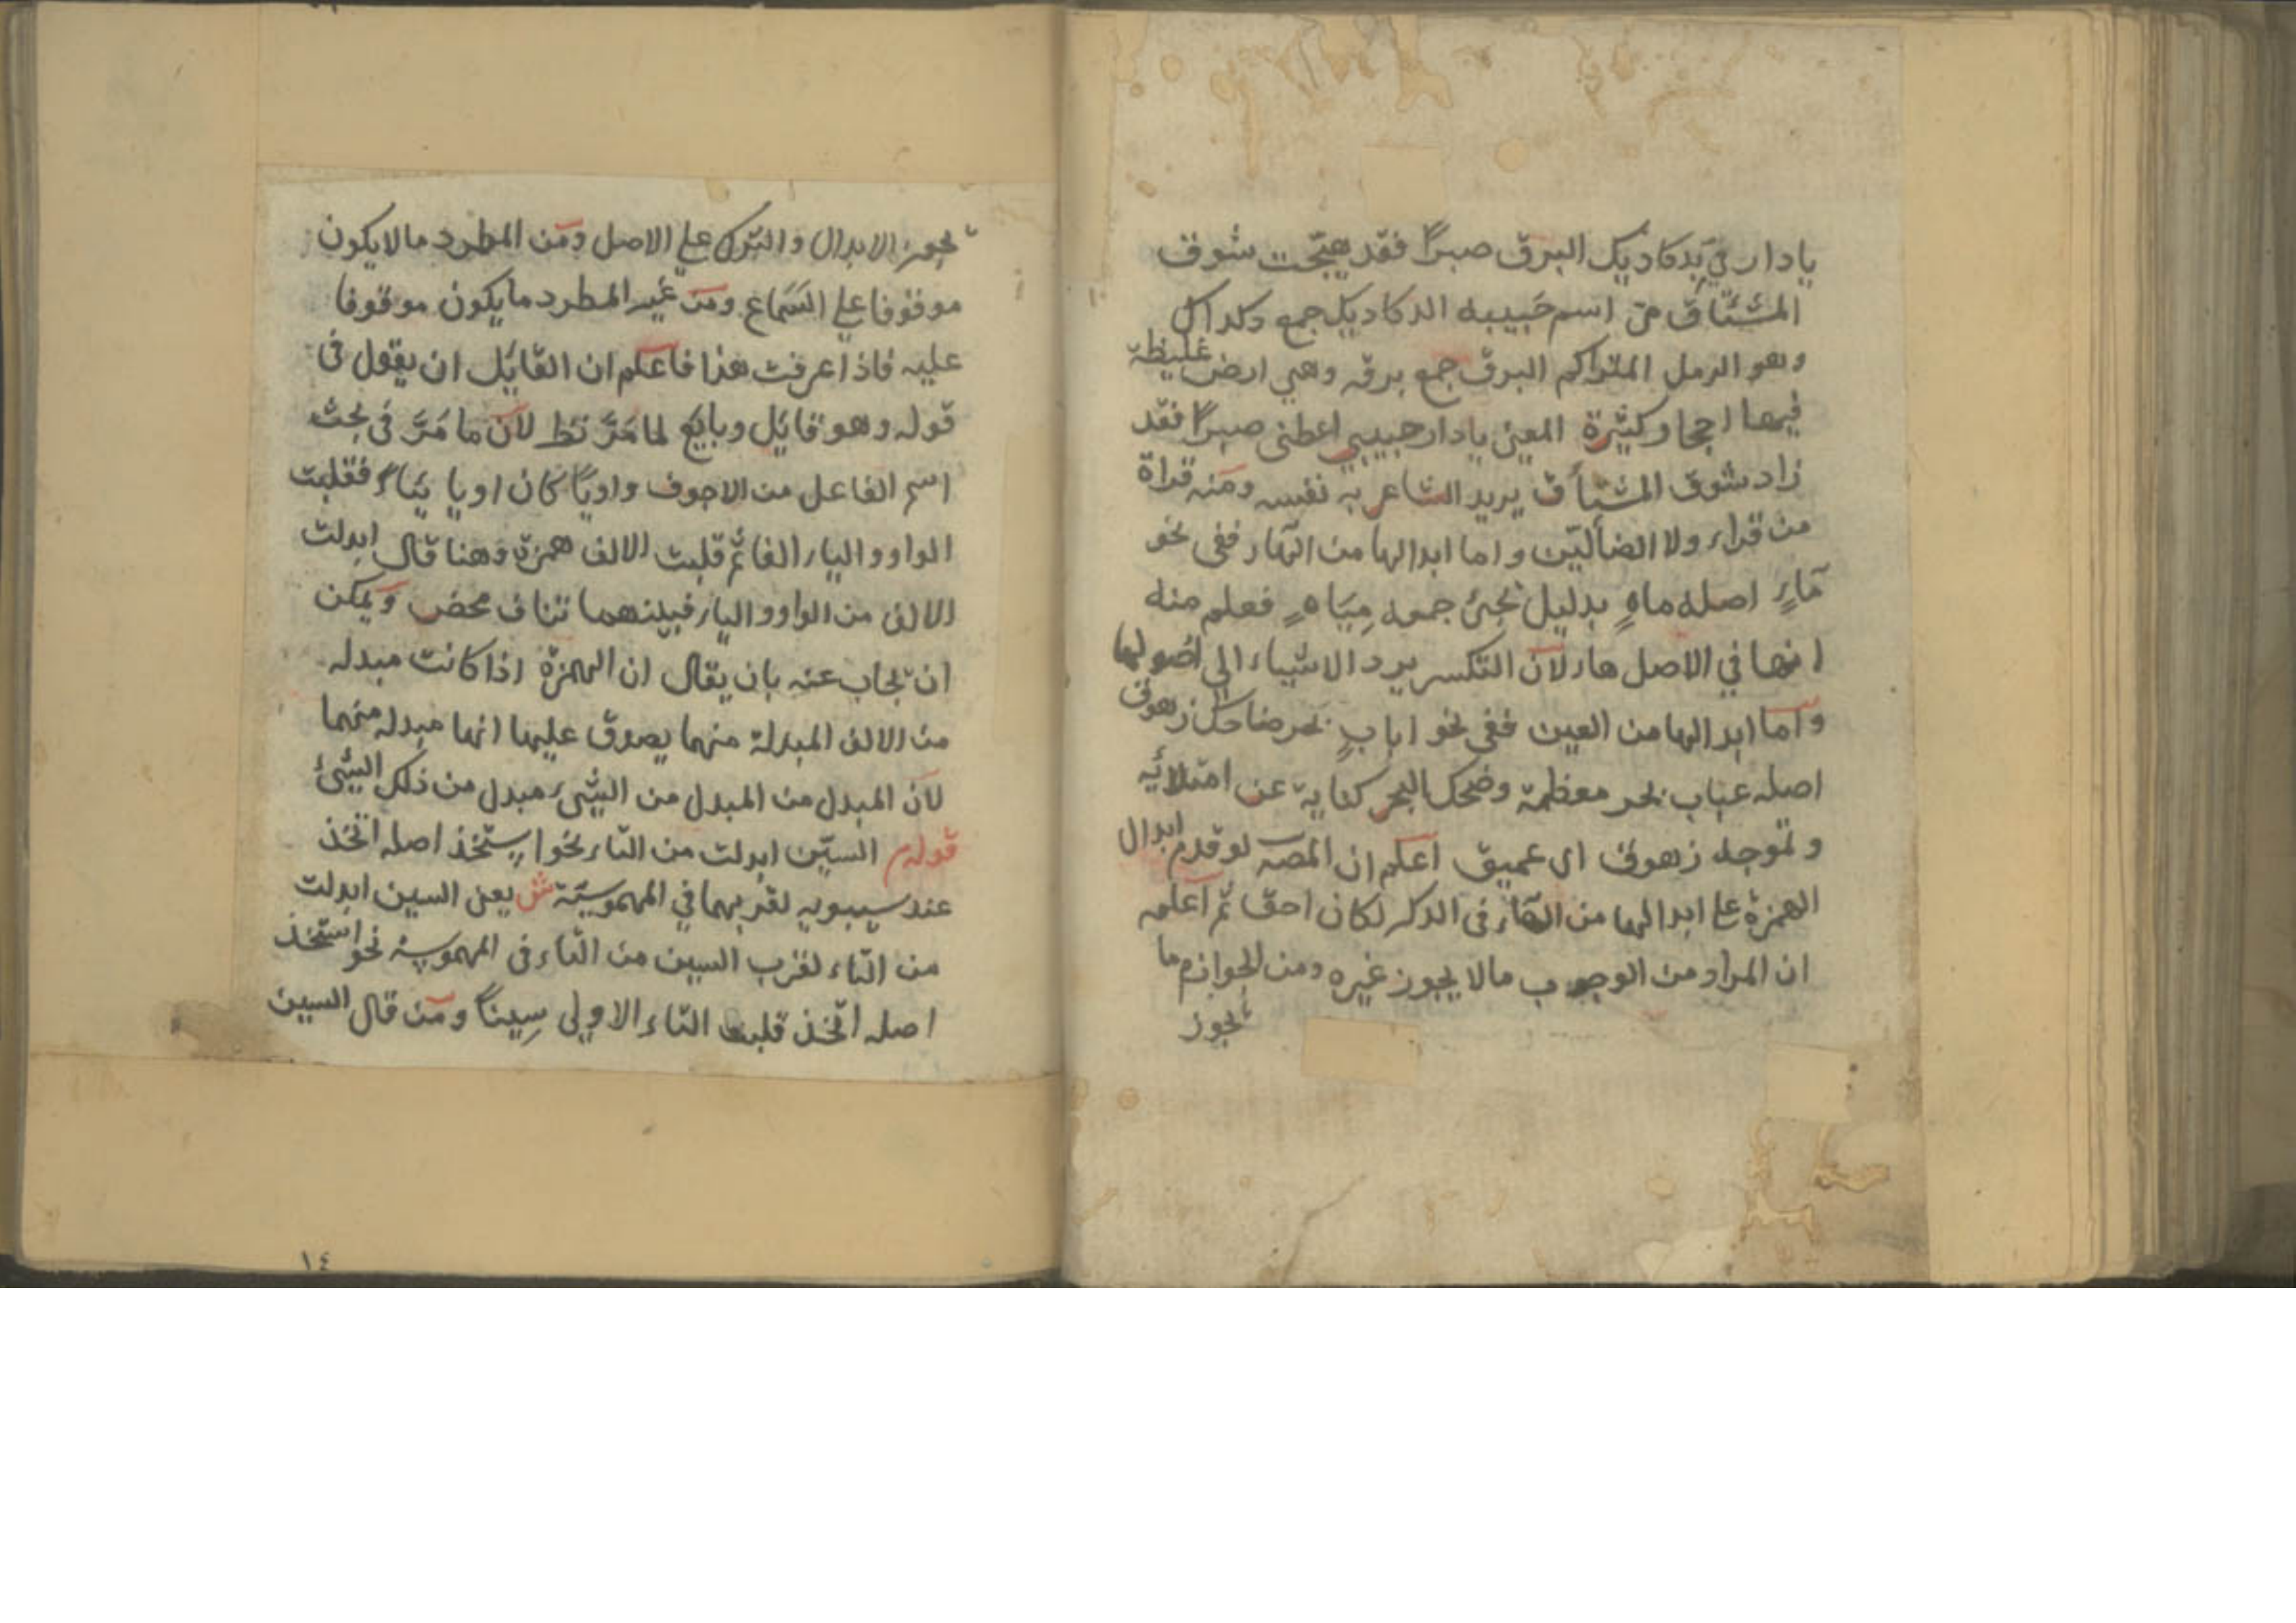 يا دار مي بدكاديك البرق صبراً فقد هيّجت شوق
المشتاق مىّ اسم حبيبه الدكاديك جمع دكداك
وهو الرمل المتراكم البرق جمع برقه وهي ارض غليظة
فيها احجار كثيرة المعنى يا دار حبيبي اعطنى صبراً فقد
زاد شوق المشتأق يريد الشاعر به نفسه ومنه قراة
من قراء ولا الضألّين واما ابدالها من الهاء ففى نحو
مآءٍ اصله ماهٍ بدليل مجئ جمعه مِيَاهٍ فعلم منه
انها في الاصل هاء لان التكسير يرد الاشياء الي اصولها
واما ابدالها من العين ففى نحو اباب بحر ضاحك زهوق
اصله عباب بحر معظمة وضحك البحر كناية عن امتلائه
وتموجه زهوق اى عميق اعلم ان المصـ لو قدم ابدال
الهمزة على ابدالها من الهاء فى الذكر لكان احق ثم اعلم
ان المراد من الوجوب مالا يجوز غيره ومن الجواز ما
يجوز
يجوز الابدال والترك على الاصل ومن المطرد ما لا يكون
موقوفا على السماع ومن غير المطرد ما يكون موقوفا
عليه فاذا عرفت هذا فاعلم ان القائل ان يقول فى
قوله وهو قائل وبايع لما مَرَّ نظر لان ما مَرَّ فى بحث
اسم الفاعل من الاجوف واويّاً كان او يا ئياً فقلبت
الواو والياء الفا ثم قلبت الالف همزة وهنا قال ابدلت
الالف من الواو والياء فبينهما تناف محض ويمكن
ان يجاب عنه بان يقال ان الهمزة اذا كانت مبدله
من الالف المبدلة منهما يصدق عليها انها مبدله منهما
لان المبدل من المبدل من الشئ مبدل من ذلك الشئ
قوله السين ابدلت من التاء نحو استخذ اصله اتخذ
عند سيبويه لقربهما في المهموسيّة ش يعنى السين ابدلت
من التاء لقرب السين من التاء فى المهموسية نحو استخذ
اصله اتّخذ قلبت التاء الاولى سِيناً ومن قال السين
١٤